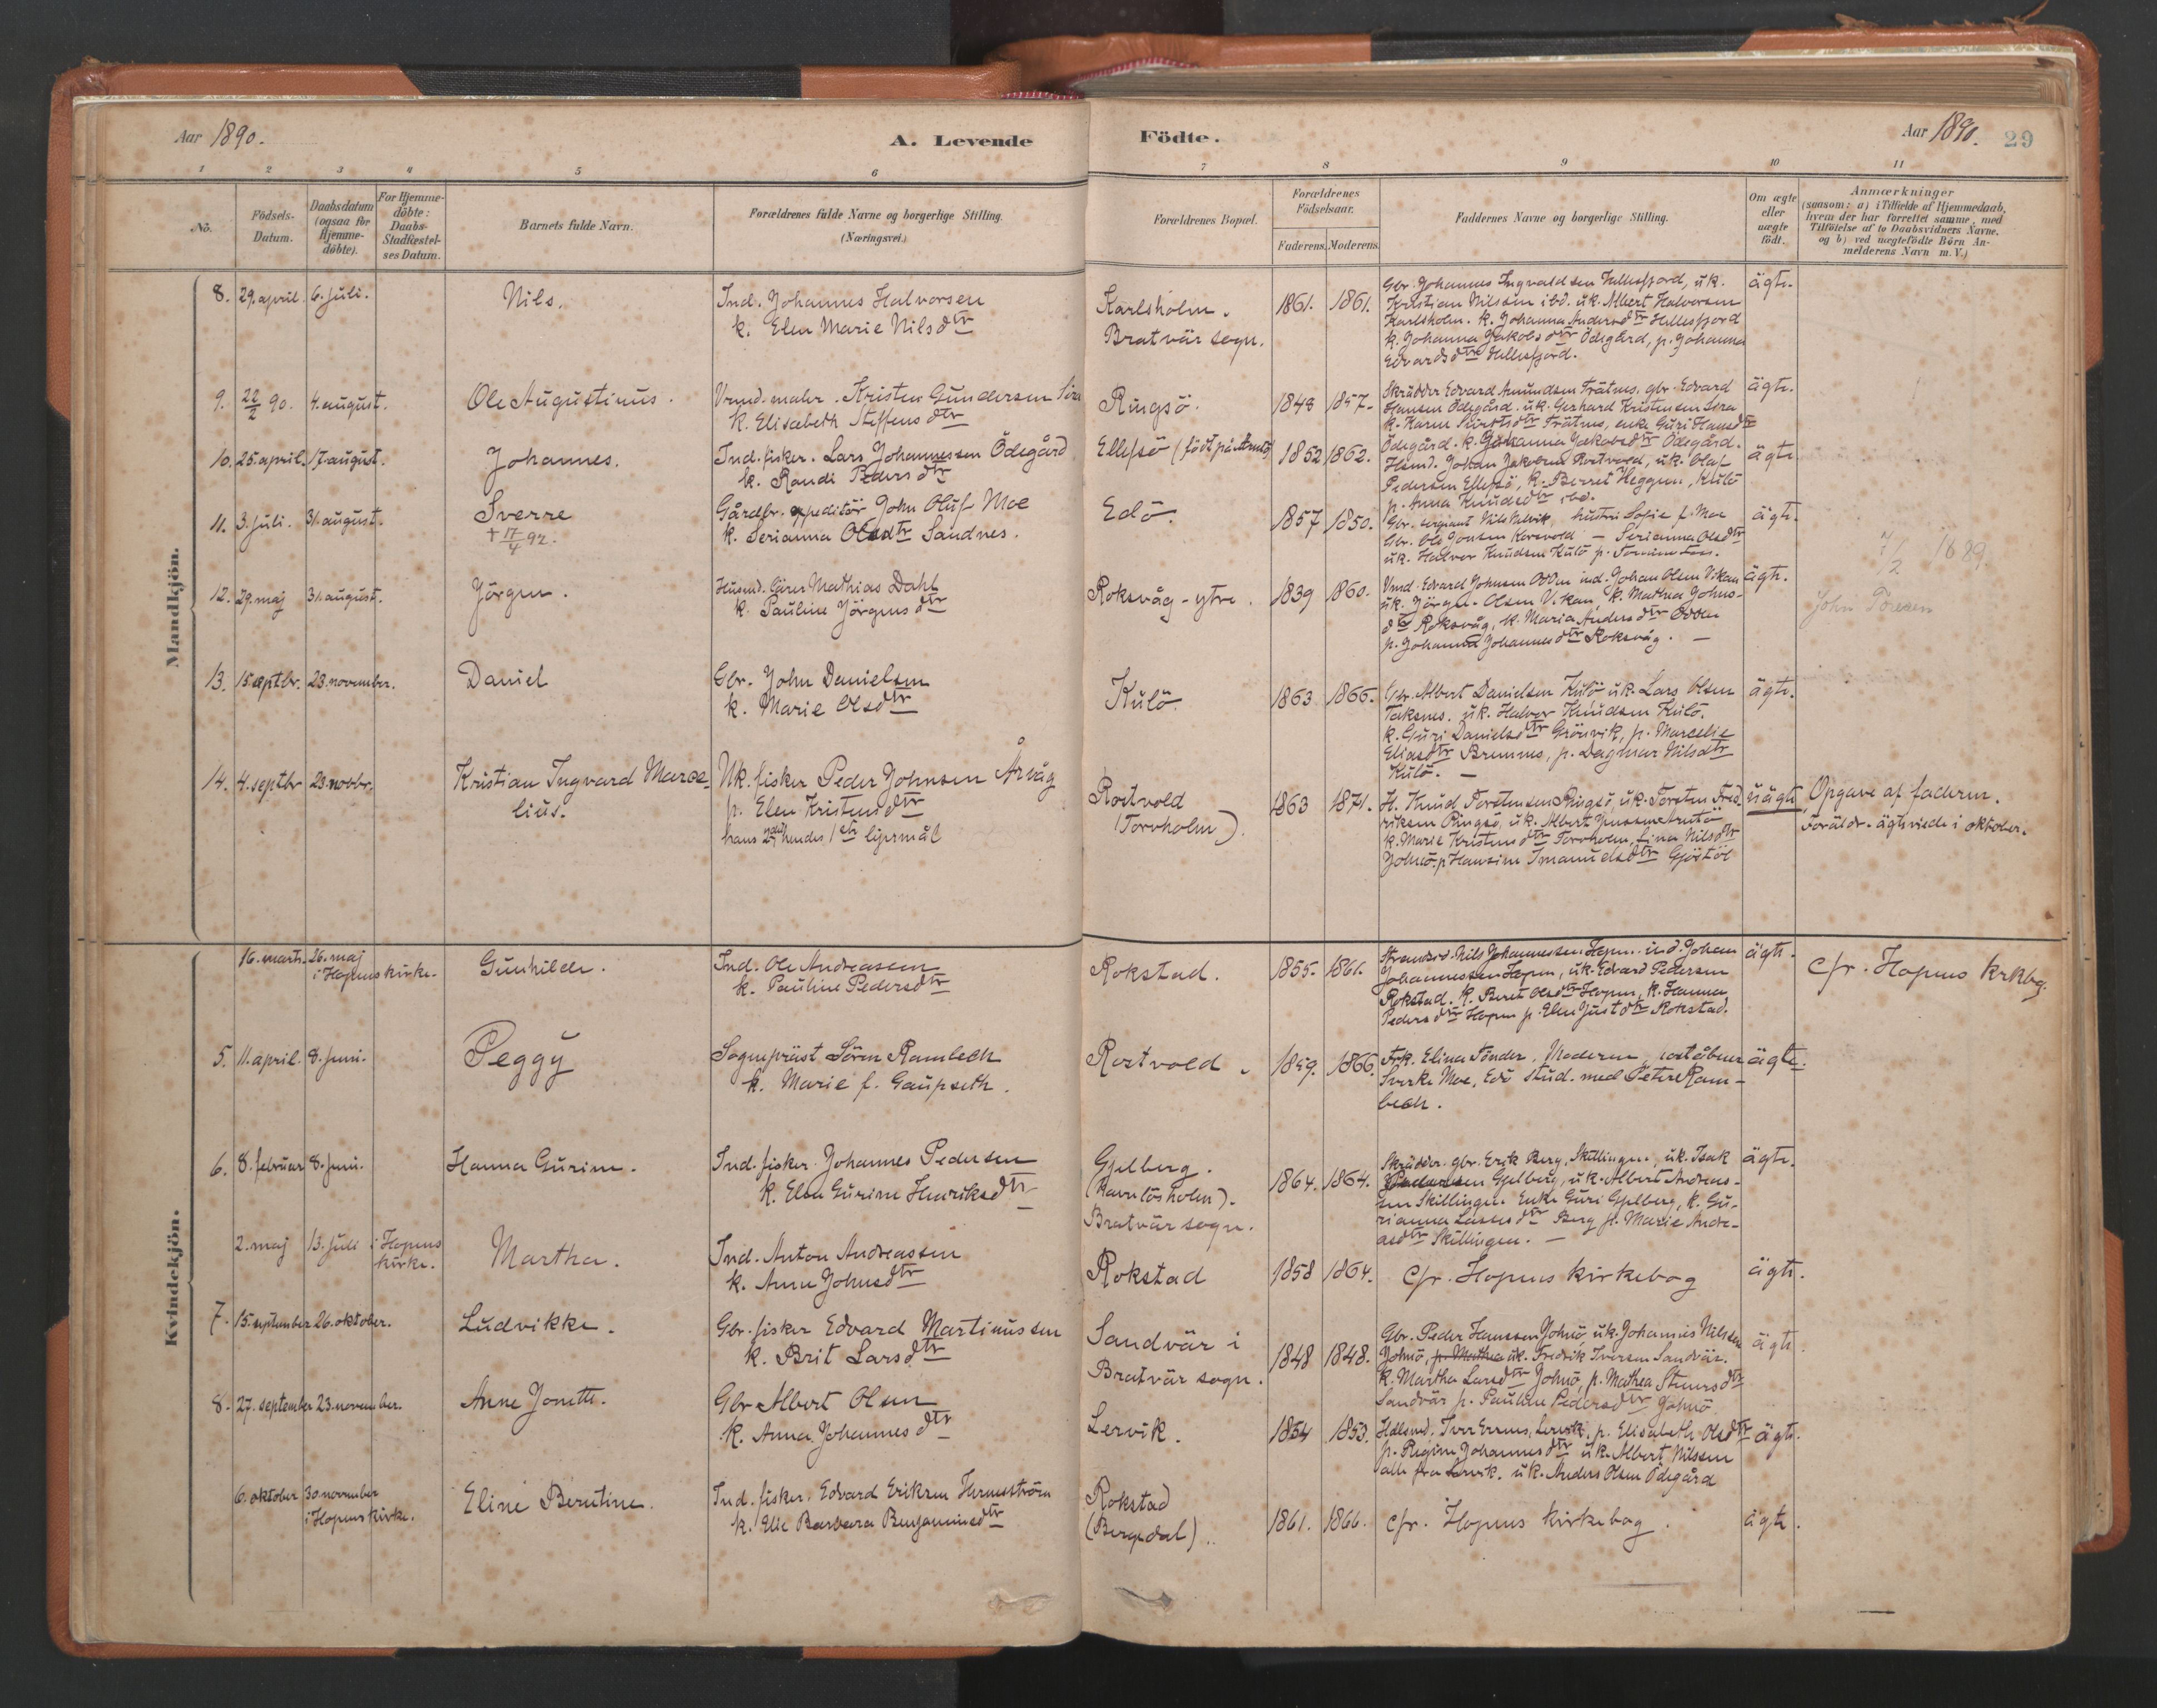 Aar 1890.
A. Levende
Födte.
Aar 1890.
29
1 2 3 4 5 6 7 8 9 10 11
No.
Födsels-Datum.
Daabsdatum (ogsaa for Hjemmedöbte).
For Hjemmedöbte: Daabs-Stadfæstelses Datum.
Barnets fulde Navn.
Forældrenes fulde Navne og borgerlige Stilling.
(Næringsvei.)
Forældrenes Bopæl.
Forældrenes Födselsaar.
Faderens. Moderens.
Faddernes Navne og borgerlige Stilling.
Om ægte eller uægte födt.
Anmærkninger
(saasom: a) i Tilfælde af Hjemmedaab,
hvem der har forrettet samme, med
Tilföielse af to Daabsvidners Navne,
og b) ved uægtefödte Börn Anmelderens Navn m. V.)
Mandkjön.
8. 29. april. 6. juli. Nils.
Ind. Johannes Halvorsen
k. Elen Marie Nilsdtr
Karlsholm.
Bratvär sogn.
1861. 1861.
Gbr. Johannes Ingvaldsen Hellesfjord, uk.
Kristian Nilssen ibd. uk. Albert Halvorsen
Karlsholm. k. Johanna Andersdtr Hellesfjord
k. Johanna Jakobsdtr Ödegård, p. Johanna
Edvardsdtr Hellesfjord.
ägte.
9. 22/2 90. 4. august. Ole Augustinus.
maler. Kristen Gundersen
k. Elisabeth Steffensdtr
Ringsö.
1848 1857.
Skrädder Edvard Amundsen gbr. Edvard
Hansen Ödegård. uk. Gerhard Kristensen
k. Karen enke Guri
Ödegård. k. Johanna Jakobsdtr Ödegård.
ägte.
10. 25. april. 17. august. Johannes.
Ind. fisker. Lars Johannessen Ödegård
k. Randi Pedersdtr
Ellefsö (födt på
1852 1862.
Johan Jakobsen Rostvold, uk. Olaf
Pedersen Ellefsö, k. Berret Heggem, Kulö
p. Anna Knudsdtr ibd.
ägte
11. 3. juli. 31. august. Sverre
† 17/4 92.
Gårdbr. expeditör John Oluf Moe
k. Serianna Olsdtr Sandnes.
Edö.
1857 1850.
Gbr. sergeant Nils hustru Sofie f. Moe
Gbr. Ole Jonsen Korsvold — Serianna Olsdtr
uk. Halvor Knudsen Kulö p.
ägte.
7/2 1889.
12. 29. maj 31. august. Jörgen.
Husmd. Mathias Dahl
k. Pauline Jörgensdtr
Roksvåg - ytre.
1839 1860.
Edvard Johnsen Odden ind. Johan Olsen Vikan
uk. Jörgen Olsen Vikan, k. Mathea Johns-
dtr Roksvåg, k. Maria Andersdtr Odden
p. Johanna Johannesdtr Roksvåg. —
ägte.
John
13. 15 septbr. 23. november. Daniel
Gbr. John Danielsen
k. Marie Olsdtr
Kulö.
1863 1866.
Gbr. Albert Danielsen Kulö uk. Lars Olsen
uk. Halvor Knudsen Kulö.
k. Guri Danielsdtr Grönvik, p. Marselie
Eliasdtr Bremnes, p. Dagmar Nilsdtr
Kulö. —
ägte.
14. 4. septbr 23. novbr. Kristian Ingvard Marce-
lius.
Uk. fisker Peder Johnsen Årvåg
p. Elen Kristensdtr
hans 2det, hendes 1ste leiersmål
Rostvold
(Torvholm).
1863 1871.
H. Knud Torstensen Ringsö, uk. Torsten Fred-
riksen Ringsö, uk. Albert
k. Marie Kristensdtr Torvholm, Nilsdtr
Johnö, p. Hansine Imanuelsdtr
uägte
Opgave af faderen.
Foräldr. ägteviede i oktober.
Kvindekjön.
16. marts. 26. maj
i Hopens kirke. Gunhilde.
Ind. Ole Andreassen
k. Pauline Pedersdtr
Rokstad.
1855. 1861.
Nils Johannessen Hopen. ind. Johan
Johannessen Hopen, uk. Edvard Pedersen
Rokstad. k. Beret Olsdtr Hopen, k. Hanna
Pedersdtr Hopen p. Elen Justdtr Rokstad.
ägte.
cfr. Hopens krkbg.
5. 11. april. 8. juni. Peggy
Sognepräst Sören Rambech
k. Marie f. Gaupseth.
Rostvold.
1859. 1866.
Frk. Elina Tönder, Moderen, postábner
Sverke Moe, Edö stud. med Petter Ram-
bech.
ägte.
6. 8. februar 8. juni. Hanna Gurine.
Ind. fisker. Johannes Pedersen
k. Elen Gurine Henriksdtr
Gjelberg.
(Havnlösholm).
Bratvär sogn.
1864. 1864.
Skrädder. gbr. Erik Berg, Skillingen. uk. Isak
Pedersen Gjelberg, uk. Albert Andreas-
sen Skillingen. Enke Guri Gjelberg, k. Gu-
rianna Larsdtr Berg p. Marie Andre-
asdtr Skillingen. —
ägte.
2. maj 13. juli i Hopens
kirke. Martha.
Ind. Anton Andreassen
k. Anne Johnsdtr
Rokstad
1858 1864.
cfr. Hopens kirkebog
ägte.
7. 15. september 26. oktober. Ludvikke.
Gbr. fisker Edvard Martinussen
k. Brit Larsdtr
Sandvär i
Bratvär sogn.
1848 1848.
Gbr. Peder Hanssen Johnö, uk. Johannes Nilssen
Johnö, p. Mathea uk. Fredrik Iversen Sandvär.
k. Martha Larsdtr Johnö, p. Mathea
Sandvär p. Pauline Pedersdtr Johnö
ägte.
8. 27. september 23. november. Anne Jonette.
Gbr. Albert Olsen
k. Anna Johannesdtr
Lervik.
1854 1853.
Iver Lervik, p. Elisabeth Olsdtr
p. Regine Johannesdtr uk. Albert Nilssen
alle fra Lervik. uk. Anders Olsen Ödegård
ägte.
6. oktober 30. november
i Hopens kirke. Eline Berntine.
Ind. fisker. Edvard Eriksen
k. Elie Barbara Benjaminsdtr
Rokstad
(Bergsdal).
1861. 1866.
cfr. Hopens kirkebog.
ägte.